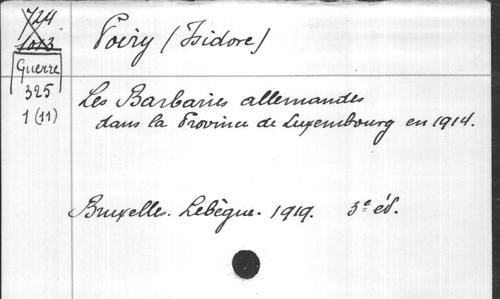 724
1013
Guerre
325
1 (11)
Poiry (Isidore)
Les Barbaries allemandes
dans la Province de Luxembourg en 1914.
Bruxelles. Lebègue. 1919. 3e éd.